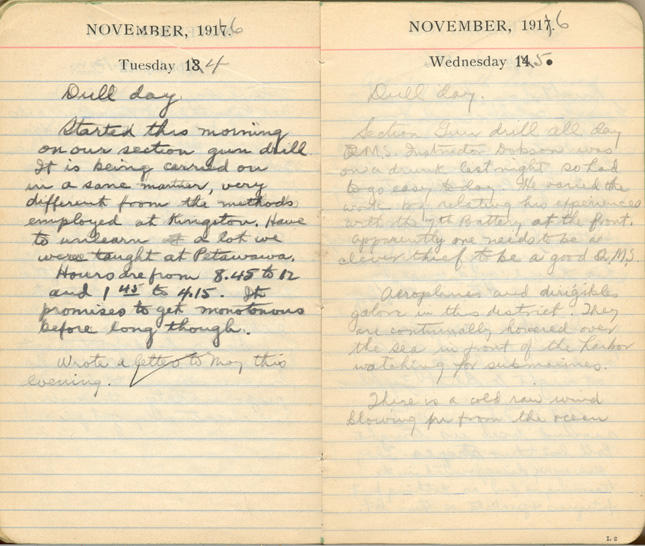 NOVEMBER, 1917.6
Tuesday 134
Dull day.
Started this morning
on our section gun drill.
It is being carried on
in a sane manner, very
different from the methods
employed at Kingston. Have
to unlearn a lot we
were taught at Petawawa.
Hours are from 8.45 to 12
and 1 45 to 4.15. It
promises to get monotonous
before long though.
Wrote a letter to May this
evening.
NOVEMBER, 1917.6
Wednesday 145.
Dull day.
Section Gun drill all day
Q.M.S. Instructor Dobson was
on a drunk last night so had
to go easy to day. He varied the
work by relating his experiences
with the 7th Battery at the front.
Apparently one needs to be a
clever thief to be a good Q.M.S.
Aeroplanes and dirigibles
galore in this district. They
are continually hovered over
the sea in front of the harbor
watching for submarines.
There is a cold raw wind
blowing in from the ocean
L 2